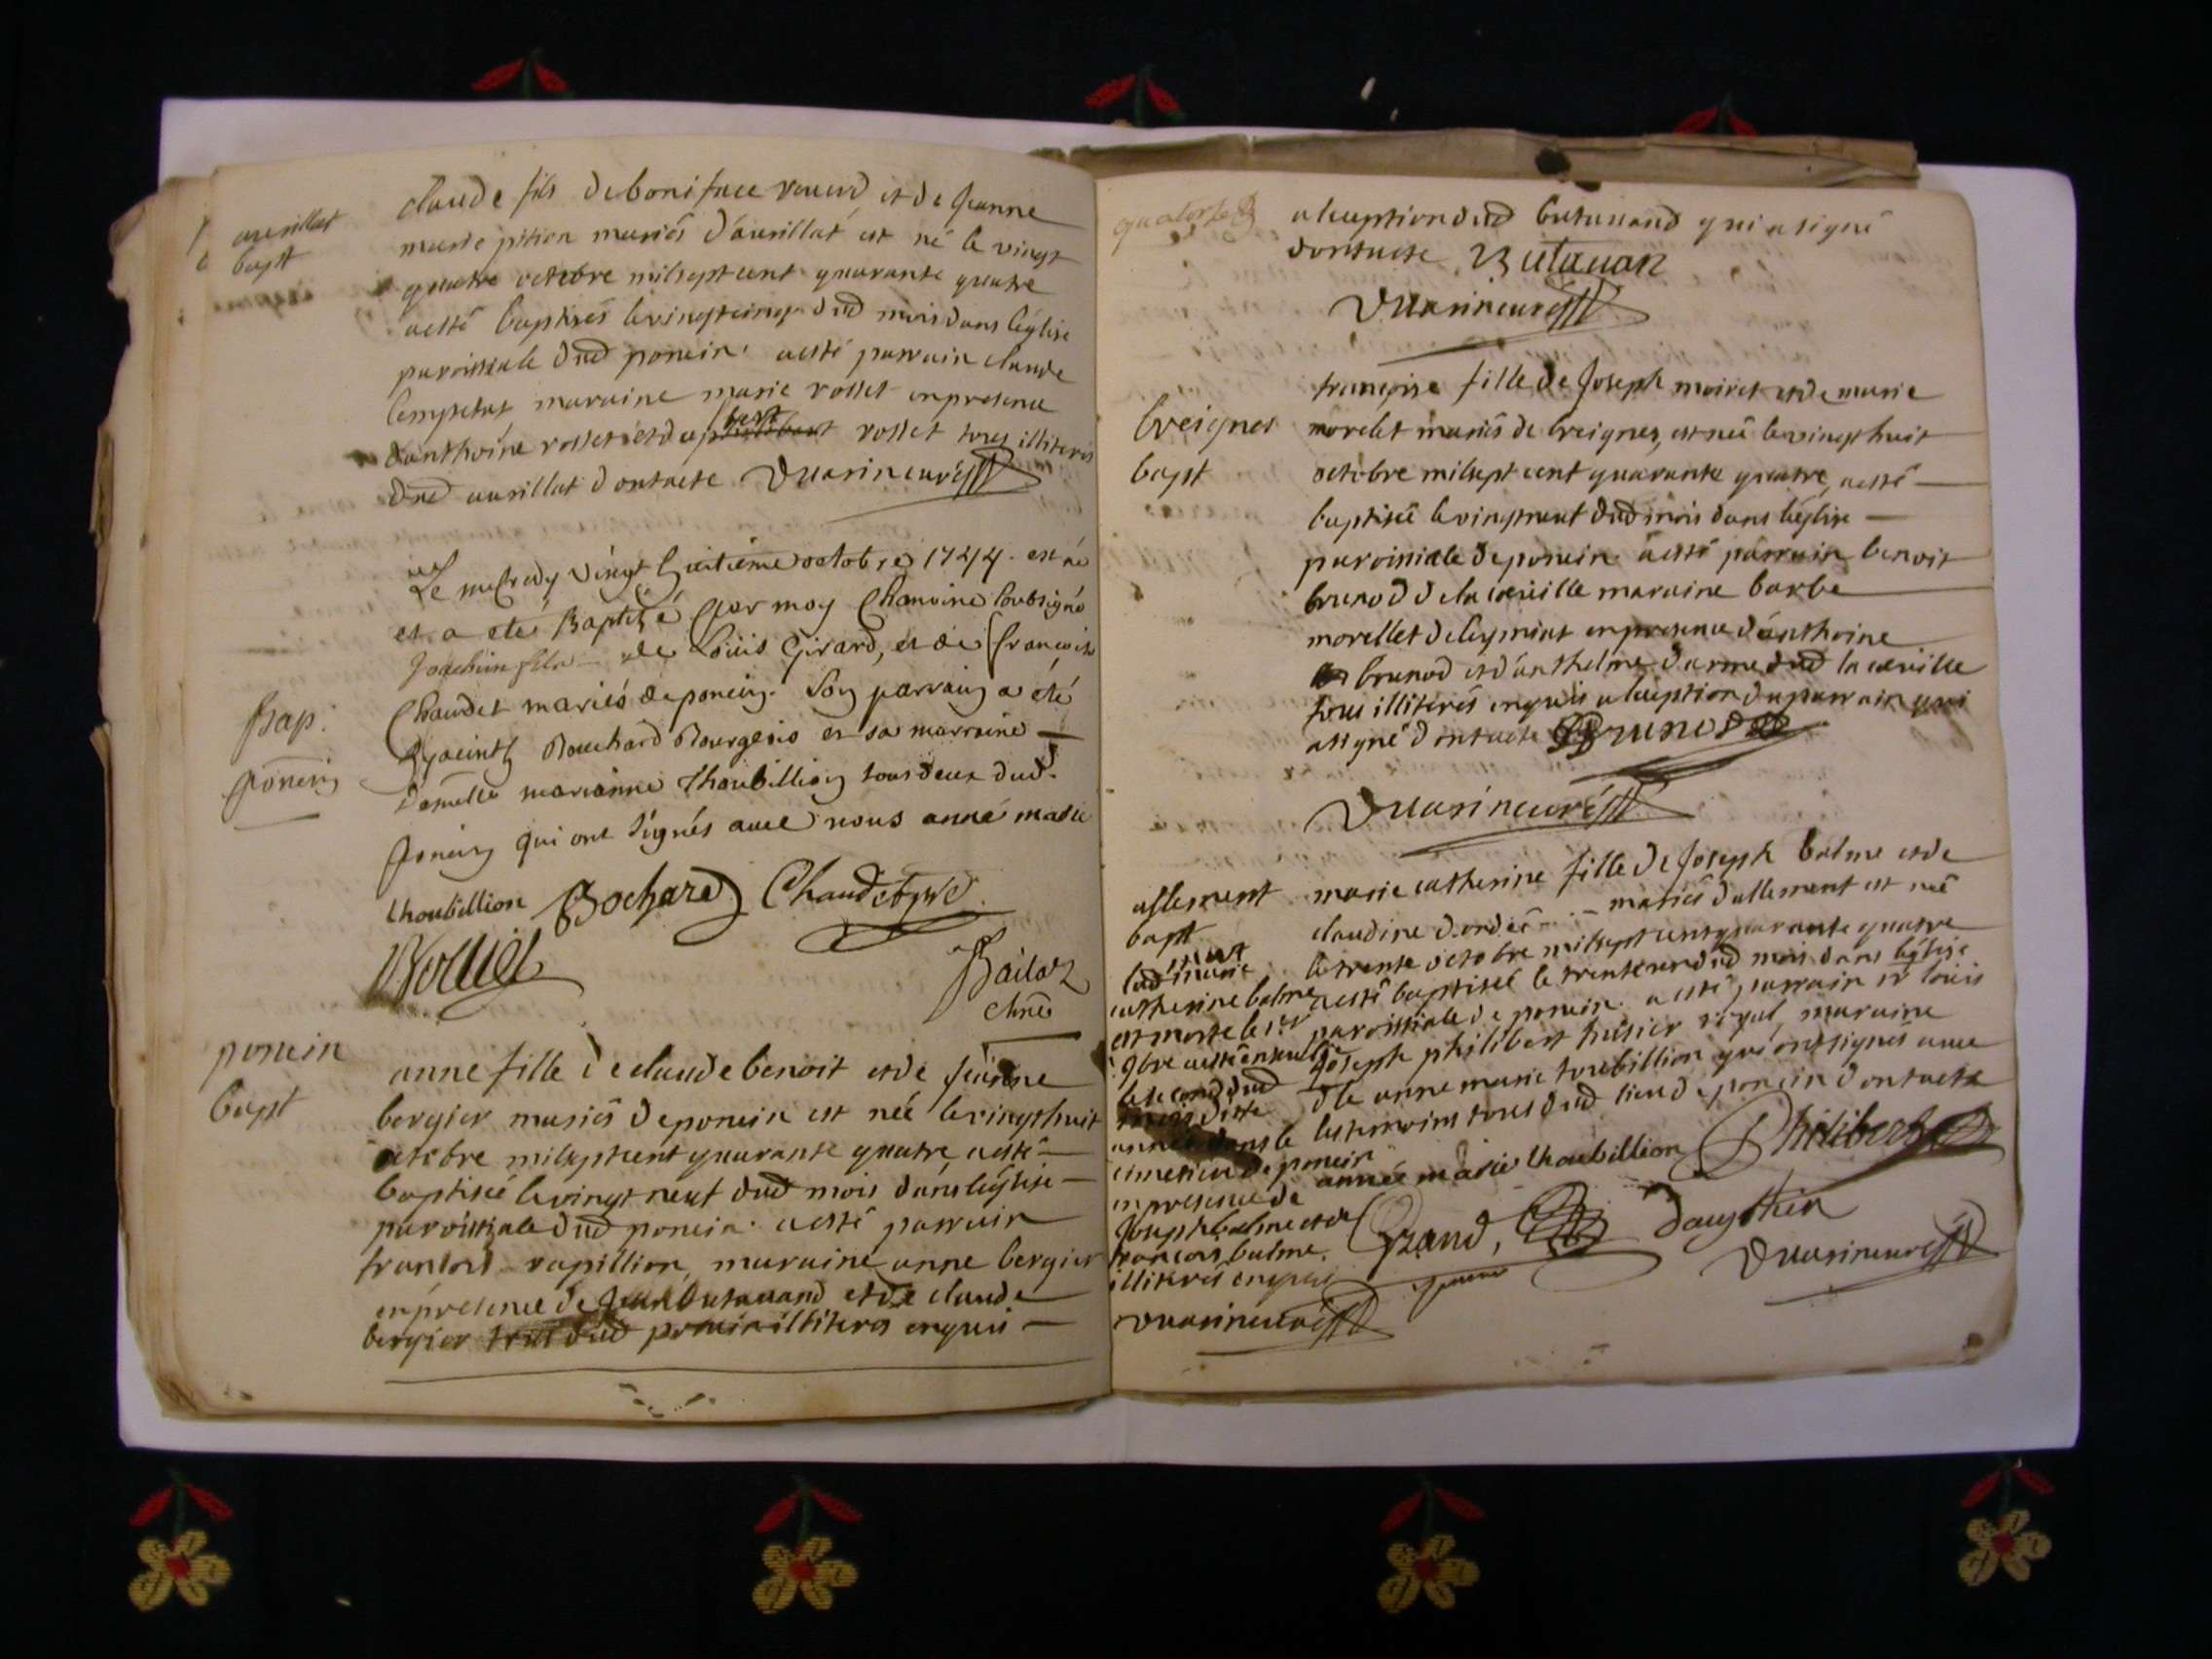 avrillat
bapt
claude fils de boniface et de Jeanne
marie pition mariés d'avrillat est né le vingt
quatre octobre mil sept cent quarante quatre
a esté baptisés le vingt cinq dud mois dans léglise
paroissiale dud poncin. a esté parrain claude
maraine marie rosset en presence
d'anthoine rosset et de rosset tous illiterés
dud avrillat dont acte Duarincuré
Le mecredy vingt huitieme octobre 1744. est né
et a eté Baptizé par moy Chanoine soubsigné
Joachim fils de Loüis Girard, et de francoise
Chaudet mariés de poncin. Son parrain a eté
Hyacinth Bouchard Bourgeois et sa marraine
Damelle marianne Thoubillion tous deux dud.
poncin qui ont signés avec nous anne marie
thoubillion Bochard Chaudet
Bap.
poncin
Bailat
chne
poncin
bapt
anne fille de claude benoit et de
bergier mariés de poncin est née le vingt huit
octobre mil sept cent quarante quatre a esté
baptisée le vingt neuf dud mois dans léglise
paroissiale dud poncin. a esté parrain
francois rapillion, maraine anne bergier
en presence de Jean butavand et de claude
bergier tous dud poncin illiteres enquis
quatorse
a lexception dud butavand qui a signé
dont acte Butavan
Duarincuré
breignes
bapt
françoise fille de Joseph moiret et de marie
morelet mariés de breignes, est née le vingt huit
octobre mil sept cent quarante quatre, a esté
baptisée le vingt neuf dud mois dans léglise
paroissiale de poncin. a esté parrain benoit
brunod de la maraine barbe
morellet de leyment en presence d'anthoine
brunod et d'anthelme darme dud la
tous illiterés enquis a lexception du parrain qui
a signé dont acte Brunod
Duarincuré
allement
bapt
marie catherine fille de Joseph balme et de
claudine mariés d'allement est née
le trente octobre mil sept cent quarante quatre
a esté baptisée le trente un dud mois dans léglise
paroissiale de poncin. a esté parrain sr louis
Joseph philibert huissier royal, maraine
dlle anne marie toubillion qui ont signés avec
les temoins tous dud lieu de poncin dont acte
anne marie thoubillion Philibert
Grand, dauphin
Duarincuré
lad marie
catherine balme
est morte le 1er
9bre a esté
le second dud
mois
année dans le
cimetiere de poncin
en presence de
Joseph balme et de
francois balme.
illiterés enquis
Duarincuré